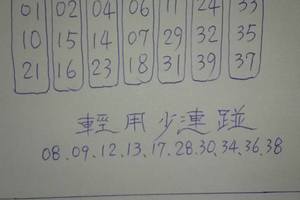 01 02 04 06 11 24 33
10 15 14 07 29 32 35
21 16 23 18 31 39 37
輕用少連碰
08.09.12.13.17.28.30.34.36.38